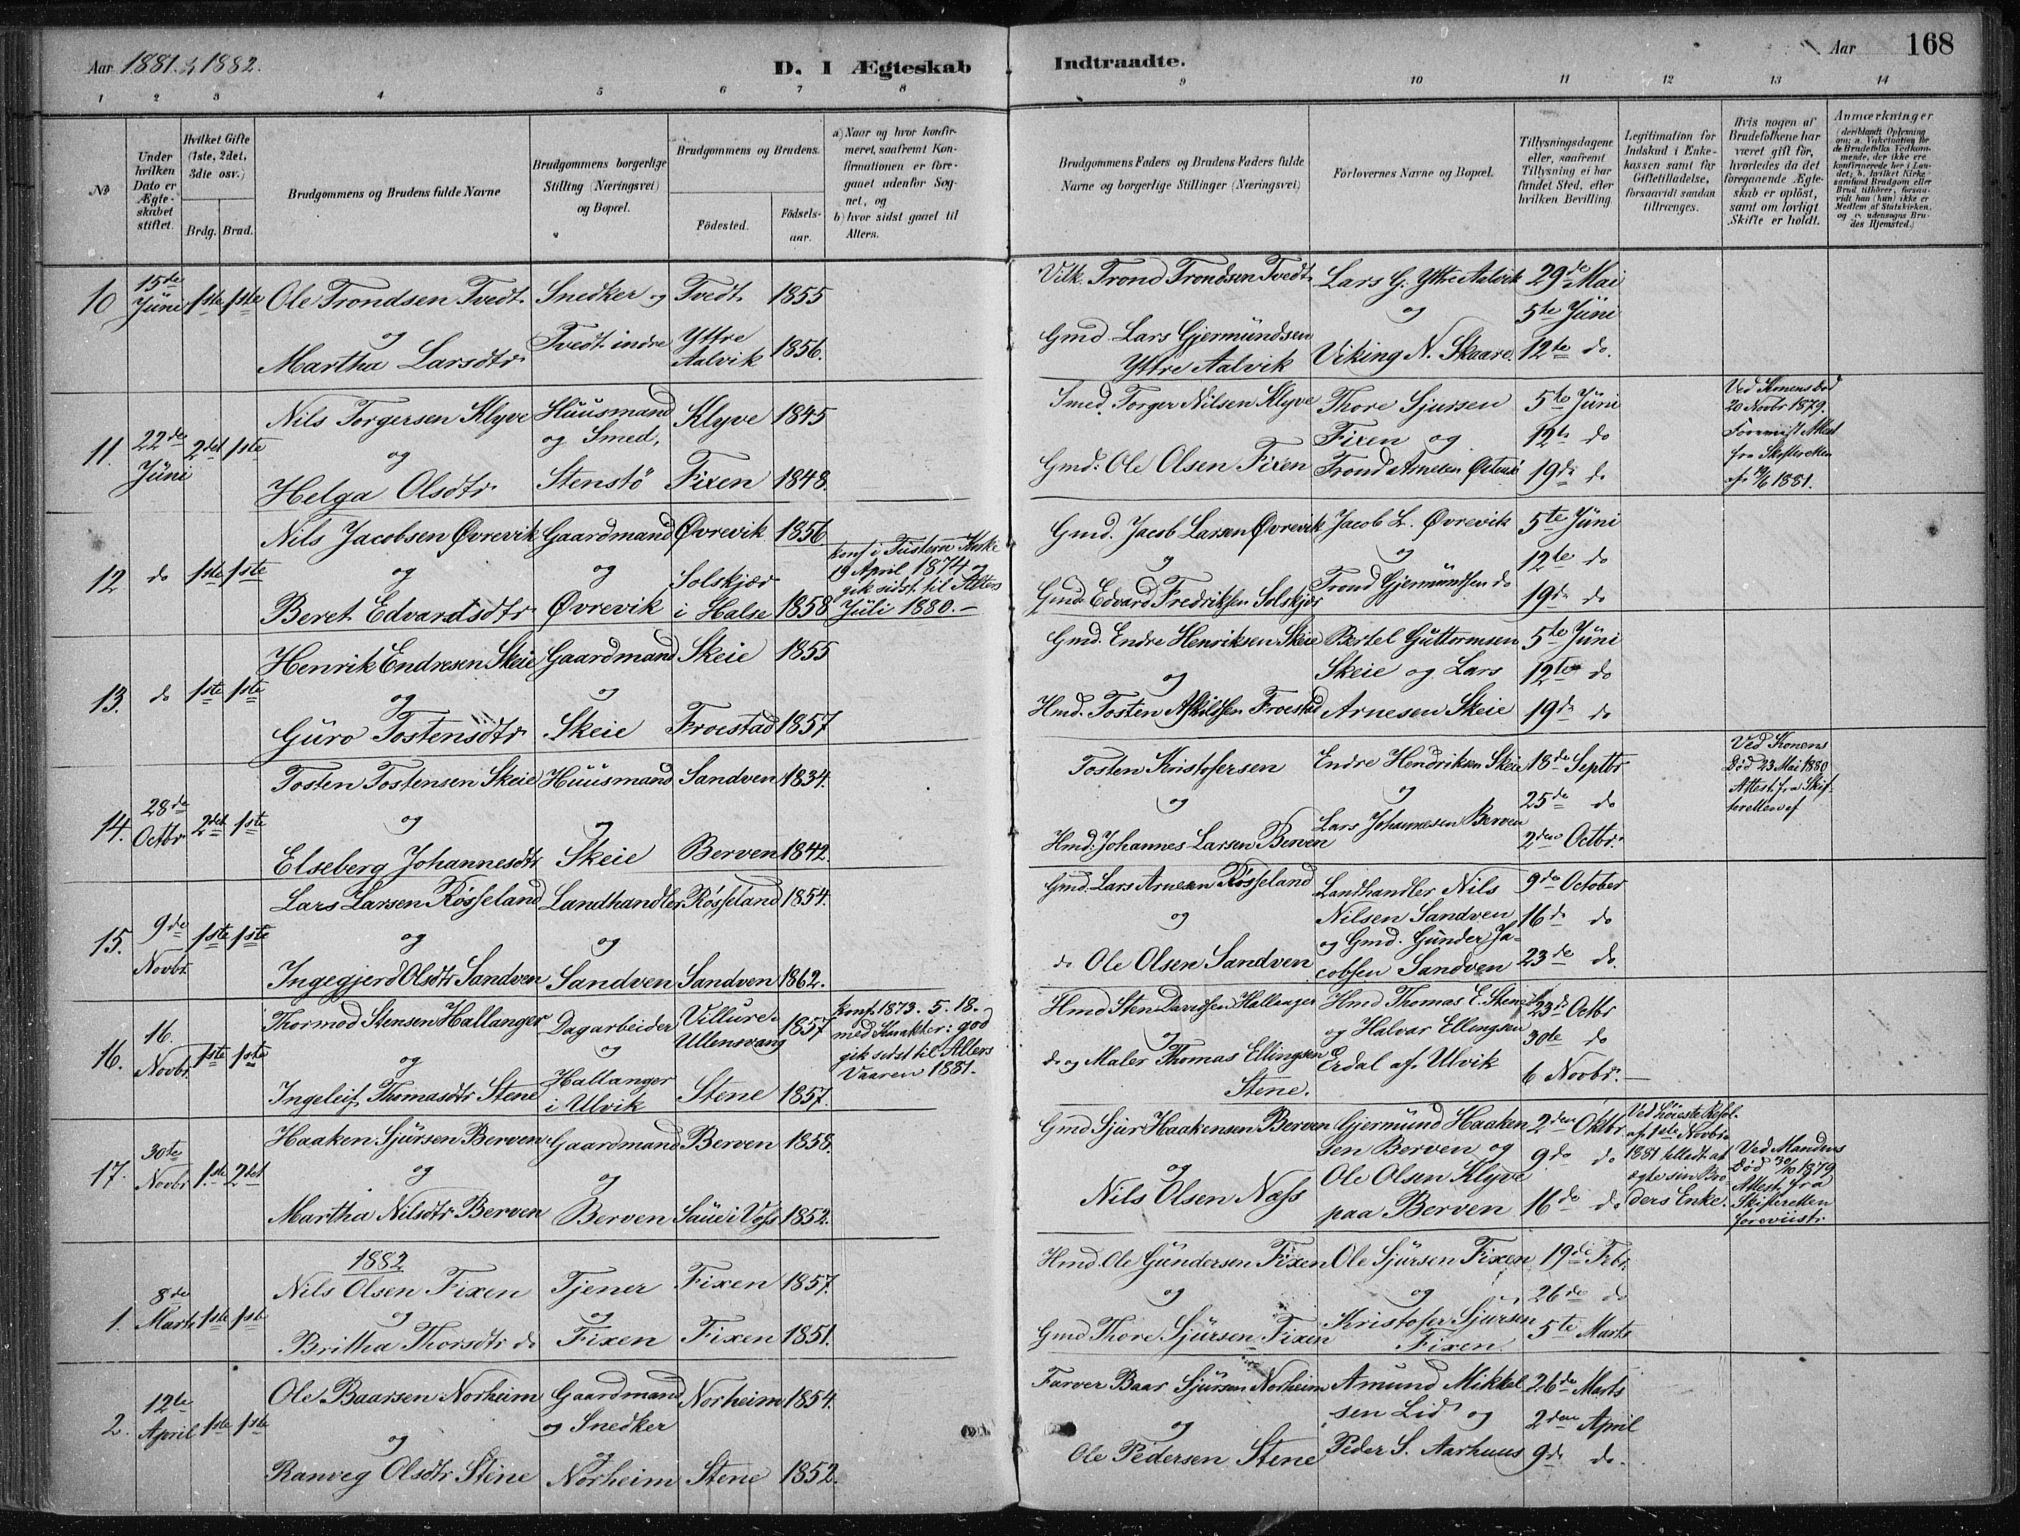 Aar 1881 & 1882.
D. I Ægteskab
Indtraadte.
Aar
168
1 2 3 4 5 6 7 8 9 10 11 12 13 14
No
Under hvilken Dato er Ægteskabet stiftet.
Hvilket Gifte (1ste, 2det, 3die osv.)
Brdg. Brud.
Brudgommens og Brudens fulde Navne
Brudgommens borgerlige Stilling (Næringsvei) og Bopæl.
Brudgommens og Brudens.
Födested.
Födsels-aar.
a) Naar og hvor konfirmeret, saafremt Konfirmationen er foregaaet udenfor Sognet, og
b) hvor sidst gaaet til Alters.
Brudgommens Faders og Brudens Faders fulde Navne og borgerlige Stillinger (Næringsvei)
Forlovernes Navne og Bopæl.
Tillysningsdagene eller, saafremt Tillysning ei har fundet Sted, efter hvilken Bevilling.
Legitimation for Indskud i Enkekassen samt for Giftetilladelse, forsaavidt saadan tiltrænges.
Hvis nogen af Brudefolkene har været gift før, hvorledes da det foregaaende Ægteskab er oplöst, samt om lovligt Skifte er holdt.
Anmærkninger
10 15de Jüni 1ste 1ste Ole Trondsen Tvedt Snedker og Tvedt 1855 Vilk. Trond Trondsen Tvedt Lars G. Yttre Aalvik 29de Mai
og og 5te Jüni
Martha Larsdtr Tvedt indre Yttre Aalvik 1856. Gmd. Lars Gjermündsen Yttre Aalvik Viking N. Skaare. 12te do.
11. 22de Jüni 2det 1ste Nils Torgersen Klyve Huusmand og Smed, Klyve 1845 Smed. Torger Nilsen Klyve Thore Sjursen 5te Jüni Ved Konens Død 20 Novbr 1879.
og Fixen og 12te do Forevist Attest fra Skifteretten
Helga Olsdtr Stenstö Fixen 1848. Gmd. Ole Olsen Fixen Trond Arnesen 19de do 1881.
12 do 1ste 1ste Nils Jacobsen Øvrevik Gaardmand Øvrevik 1856 Gmd. Jacob Larsen Øvrevik Jacob L. Øvrevik 5te Jüni
og og konf i Tustern Kirke 19 April 1874 og gik sidst til Alters Jüli 1880. og og 12te do
Beret Edvardsdtr Øvrevik Solskjær i Halse 1858 Gmd. Edvard Fredriksen Solskjær Trond Gjermündsen do 19de do
13. do 1ste 1ste Henrik Endresen Skeie Gaardmand Skeie 1855 Gmd. Endre Henriksen Skeie Bertel Guttormsen 5te Jüni
og og og Skeie og Lars 12te do
Güro Tostensdtr Skeie Froestad 1857 Hmd. Tosten Askildsen Froestad Arnesen Skeie 19de do
14. 28de Octbr 2det 1ste Tosten Tostensen Skeie Huusmand Sandven 1834. Tosten Kristofersen Endre Hendriksen Skeie 18de Septbr Ved Konens Død 23 Mai 1880
og og og og 25de do Attest fra Skifteretten
Elseberg Johannesdtr Skeie Berven 1842. Hmd. Johannes Larsen Berven Lars Johannesen Berven 2den Octbr.
15. 9de Novbr. 1ste 1ste Lars Larsen Røsseland Landhandler Røsseland 1854. Gmd. Lars Arnesen Røsseland Landhandler Nils 9de October
og og og Nilsen Sandven 16de do
og Gmd. Günder Ja-
Ingegjerd Olsdtr Sandven Sandven Sandven 1862. do Ole Olsen Sandven cobsen Sandven 23de do.
16. 16. Novbr. 1ste 1ste Thormod Stensen Hallanger Dagarbeider Villure Ullensvang 1857 Konf. 1873. 5. 18. med Karakter: god gik sidst til Alters Vaaren 1881. Hmd Sten Davidsen Hallanger Hmd Thomas E. Stene 23de Octbr
og og og og Halvar Ellingsen 30te do
Ingeleif Thomasdtr Stene Hallanger i Ulvik Stene 1857. do og Maler Thomas Ellingsen Stene. Erdal af Ulvik 6 Novbr.
17. 30te Novbr 1.ste 2det Haaken Sjürsen Berven Gaardmand Berven 1858. Gmd Sjur Haakensen Berven Gjermünd Haaken- 2den Oktbr Ved høieste Resol. af 1ste Novbr 1881 tilladt at ægte sin Broders Enke. Ved Mandens Død 30/10 1879 Attest fra Skifteretten foreviist
og og og sen Berven og 9de do
Martha Nilsdtr Berven Berven Saue i Voss 1852. Nils Olsen Næss Ole Olsen Klyve paa Berven 16de do
1882
1. 8de Marts 1ste 1ste Nils Olsen Fixen Tjener Fixen 1857. Hmd. Ole Gündersen Fixen Ole Sjürsen Fixen 19de Febr.
og og og og 26de do
Britha Thorsdtr do Fixen Fixen 1851. Gmd Thore Sjürsen Fixen Kristofer Sjürsen Fixen 5te Marts
2. 12te April 1ste 1ste Ole Baarsen Norheim Gaardmand og Snedker Norheim 1854. Farver Baar Sjürsen Norheim Amund Mikkel- 26de Marts
og og og sen Lid og 2den April
Ranveg Olsdtr Stene Norheim Stene 1852. Ole Pedersen Stene Peder S. Aarhuus 9de do.